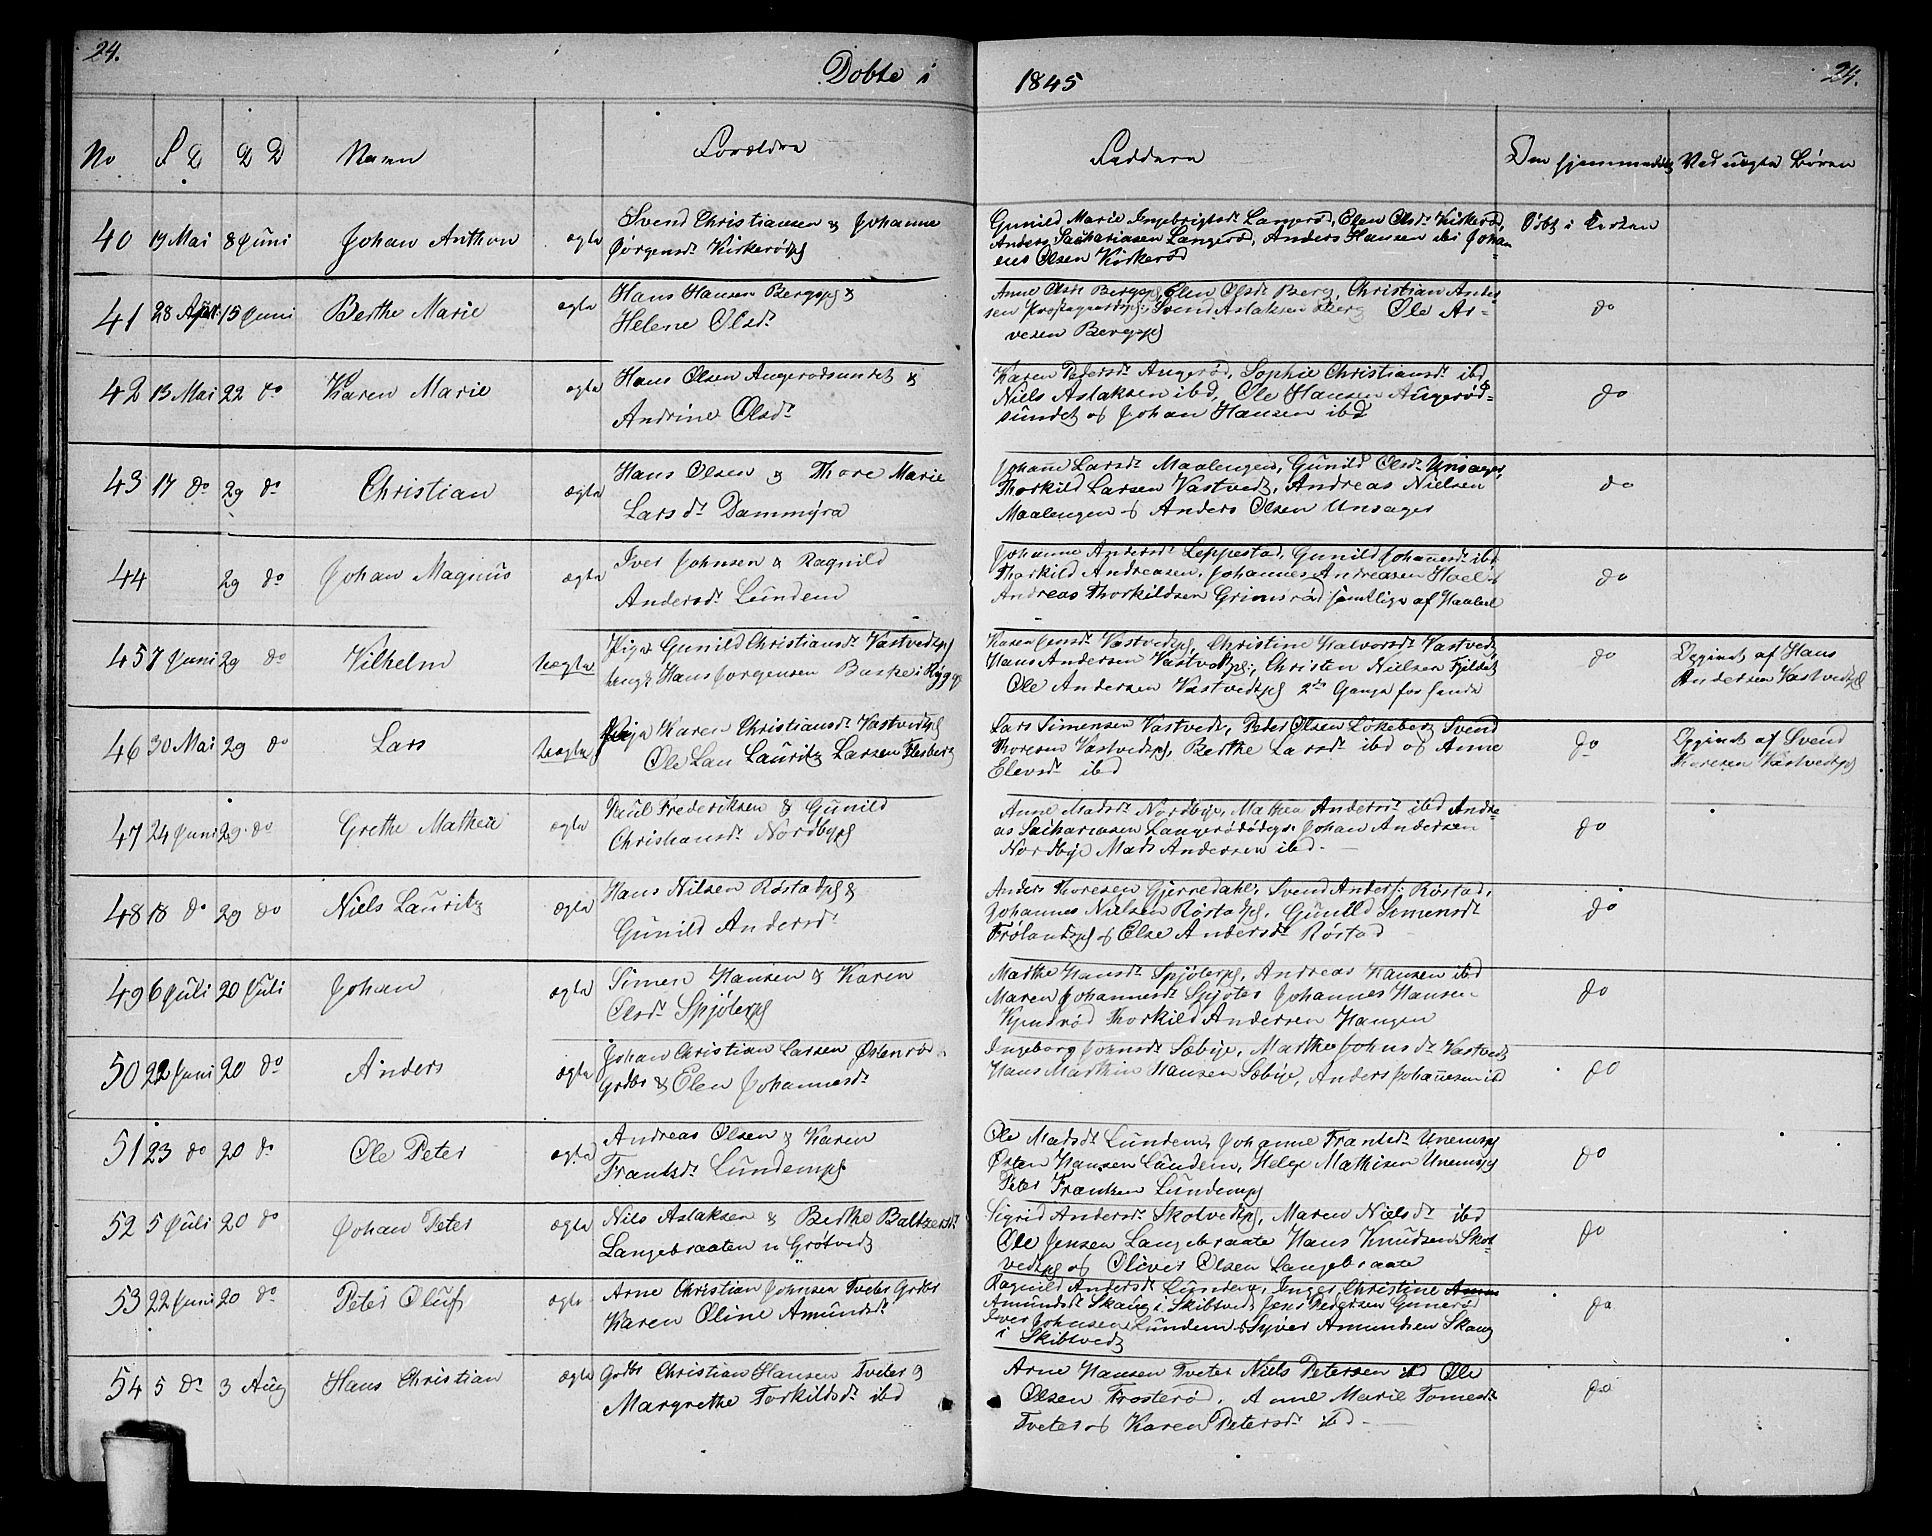 24.
Døbte i
1845
24.
No
F D
D D
Navn
Forældre
Faddere
Om hjemmedøbt
Ved uægte Børn
40 19 Mai 8 Juni Johan Anthon ægte Svend Christiansen & Johanne
Jørgensdr Kirkerødpl
Gunild Marie Ingebrigtsdr Langerød, Elen Olsdr Kirkerød,
Anders Sachariasen Langerød, Anders Hansen ibi Johan
enes Olsen Kirkerød
Døbt i Kirken
41 28 April 15 Juni Berthe Marie ægte Hans Hansen Bergpl &
Helene Olsdr
Anne Olsdr Bergpl, Elen Olsdr Berg, Christian Ander
sen Prestegaardspl, Svend Aslaksen Berg Ole Ar-
vesen Bergpl
do
42 13 Mai 22 do Karen Marie ægte Hans Olsen Augerødsundet &
Andrine Olsdr
Karen Pedersdr Augerød, Sophie Christiansdr ibd
Niels Aslaksen ibd, Ole Hansen Augerød-
sundet og Johan Hansen ibd
do
43 17 do 29 do Christian ægte Hans Olsen & Thore Marie
Larsdr Dammyra
Johane Larsdr Maalengen, Gunild Olsdr Unsager,
Thorkild Larsen Vastvedt, Andreas Nielsen
Maalengen & Anders Olsen Unsager
do
44 29 do Johan Magnus ægte Iver Johnsen & Ragnild
Andersdr Lundem
Johanne Andersdr Leppestad, Gunild Johanesdr ibd
Thorkild Andreasen, Johannes Andreasen Hoel &
Andreas Thorkildsen Grimsrød samtlige af Haabøl
do
45 7 Juni 29 do Vilhelm Uægte Pige Gunild Christiansdr Vastvedtpl
Ungk Hans Jørgensen Buskei Rygge
Karen Jensdr Vastvedtpl, Christine Halvorsdr Vastvedt
Hans Andersen Vastvedtpl, Christen Nielsen Fjeldet
Ole Andersen Vastvedtpl 2de Gange for hende
do
Opgivet af Hans
Andersen Vastvedtpl
46 30 Mai 29 do Lars Uægte Pige Karen Christiansdr Vastvedtpl
Ole Lau Lauritz Larsen Flesberg
Lars Simensen Vastvedt, Peder Olsen Løkeberg Svend
Thoresen Vastvedtpl, Berthe Larsdr ibd og Anne
Elevsdr ibd
do
Opgivet af Svend
Thoresen Vastvedtpl
47 24 Juni 29 do Grethe Mathea ægte Poul Frederiksen & Gunild
Christiansdr Nordbypl
Anne Madsdr Nordbye, Mathea Andersdr ibd Andre-
as Sachariasen Langerødødegr Johan Andersen
Nordbye Mads Andersen ibd.
do
48 18 do 29 do Niels Lauritz ægte Hans Nilsen Røstadpl &
Gunild Andersdr
Anders Thoresen Gjerredahl, Svend Anders: Røstad,
Johannes Nielsen Røstadpl, Gunild Simensdr
Frølandspl & Else Andersdr Røstad
do
49 6 Juli 20 Juli Johan ægte Simen Hansen & Karen
Olsdr Spjøterpl
Marthe Hansdr Spjøterpl, Andreas Hansen ibd
Maren Johannesdr Spjøter Johannes Hansen
Kjendrød Thorkild Andersen Haugen
do
50 22 Juni 20 do Anders ægte Johan Christian Larsen Østenrød
Grdbr & Elen Johannesdr
Ingeborg Johnsdr Sæbye, Marthe Johnsdr Vastvedt
Hans Marthin Hansen Sæbye, Anders Johanesen ibd
do
51 23 do 20 do Ole Peter ægte Andreas Olsen & Karen
Frantsdr Lundempl
Ole Madsdr Lundem, Johanne Frantsdr Unempl
Østen Hansen Lundem, Helge Mathisen Unempl
Peter Frantsen Lundempl
do
52 5 Juli 20 do Johan Peter ægte Nils Aslaksen & Berthe Baltzersdr
Langebraaten u Grøtvedt
Sigrid Andersdr Skolvedtpl, Maren Nielsdr ibd
Ole Jensen Langebraate Hans Knudsen Skol-
vedtpl og Oliver Olsen Langebraate
do
53 22 Juni 20 do Peter Oluf ægte Arne Christian Johnsen Tveter Grdbr
Karen Oline Amundsdr
Ragnild Andersdr Lundem, Inger Christine
Amundsdr Skaug i Skibtvedt Jens Pedersen Gunerød
Iver Johnsen Lundem & Syver Amundsen Skaug
i Skibtvedt
do
54 5 do 3 Aug Hans Christian ægte Grdbr Christian Hansen Tveter &
Margrethe Torkildsdr ibd
Arne Hansen Tveter Niels Petersen ibd Ole
Olsen Frosterød, Anne Marie Tomesdr
Tveter & Karen Petersdr ibd
do